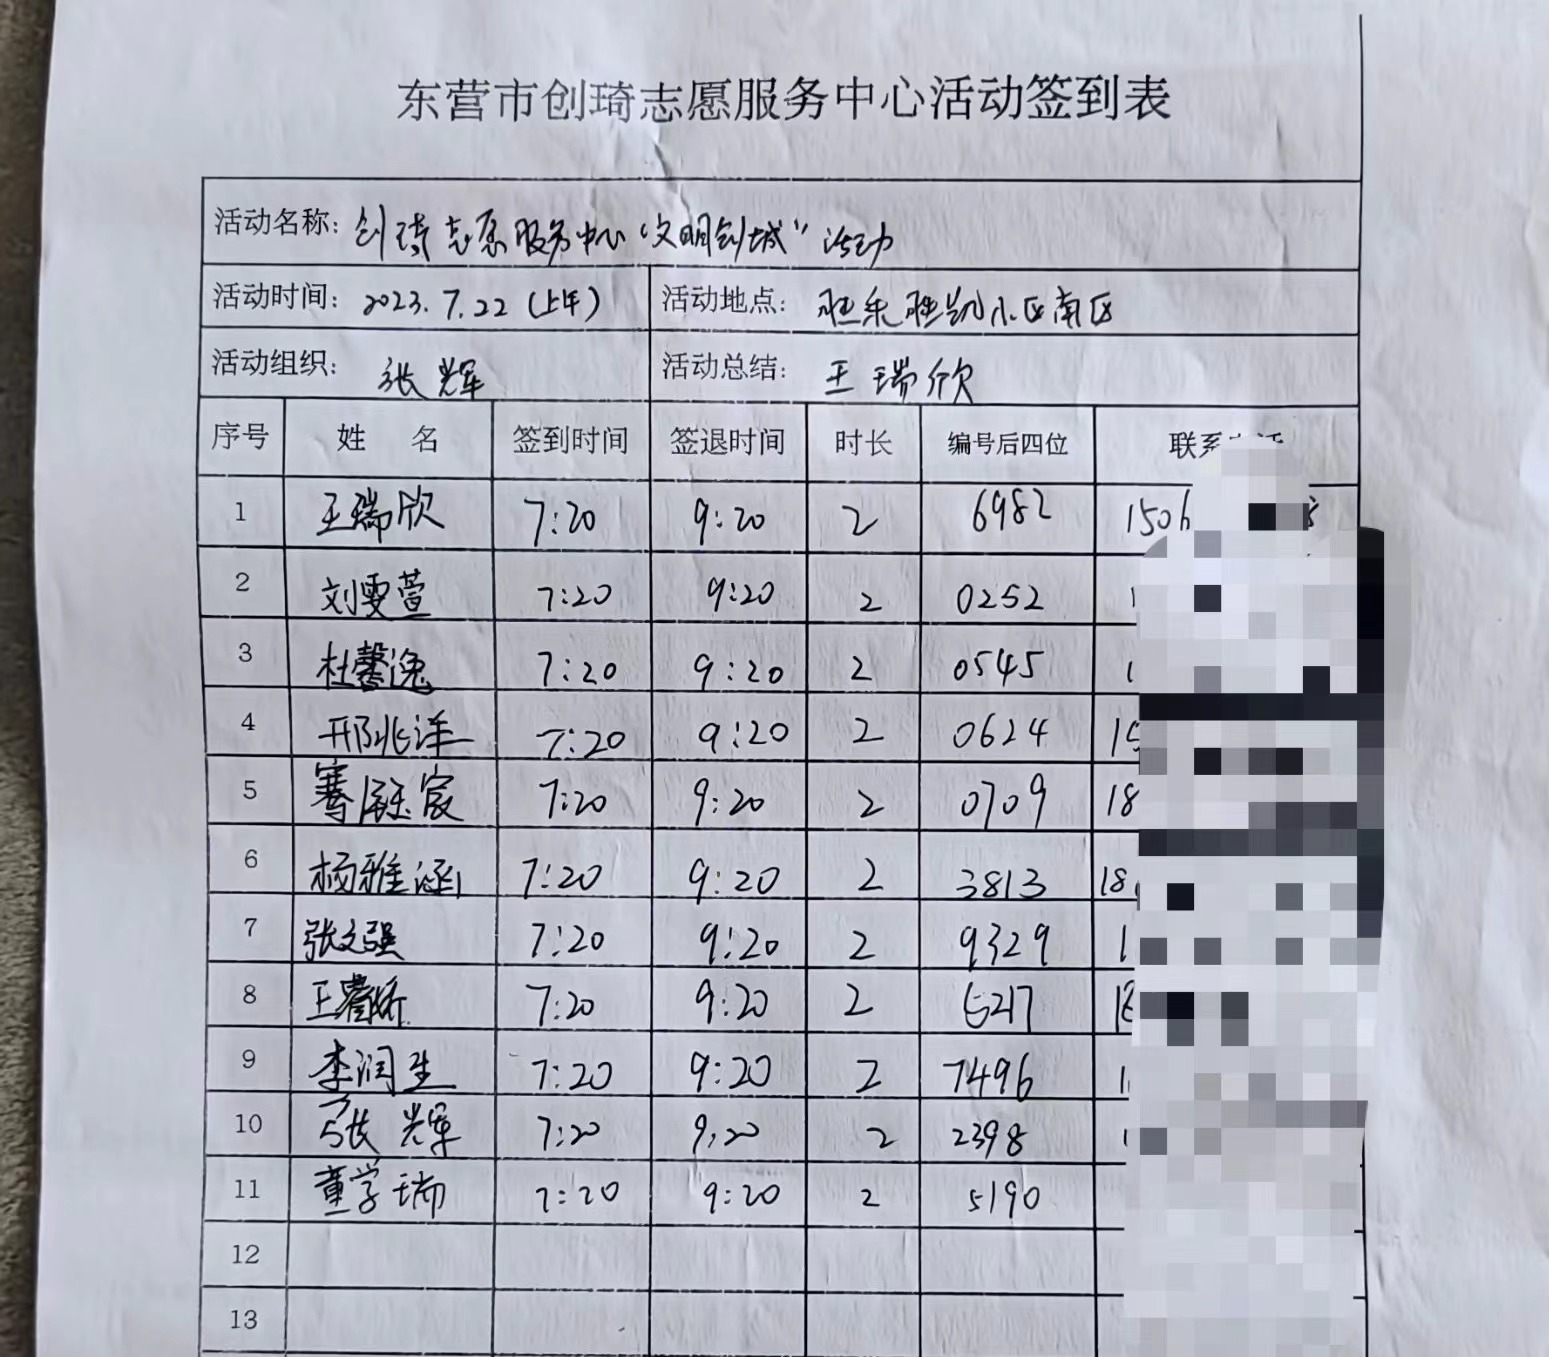 东营市创琦志愿服务中心活动签到表
活动名称: 创琦志愿服务中心“文明创城”活动
活动时间: 2023.7.22(上午) 活动地点: 胜采胜凯小区南区
活动组织: 张辉 活动总结: 王瑞欣
序号 姓 名 签到时间 签退时间 时长 编号后四位 联系
1 王瑞欣 7:20 9:20 2 6982 1506
2 刘雯萱 7:20 9:20 2 0252 1
3 杜馨逸 7:20 9:20 2 0545 1
4 邢兆洋 7:20 9:20 2 0624 15
5 7:20 9:20 2 0709 18
6 杨雅涵 7:20 9:20 2 3813 18
7 张文强 7:20 9:20 2 9329 1
8 王 娇 7:20 9:20 2 6217 1
9 李润生 7:20 9:20 2 7496 1
10 张辉 7:20 9:20 2 2398 1
11 董学瑞 7:20 9:20 2 5190
12
13